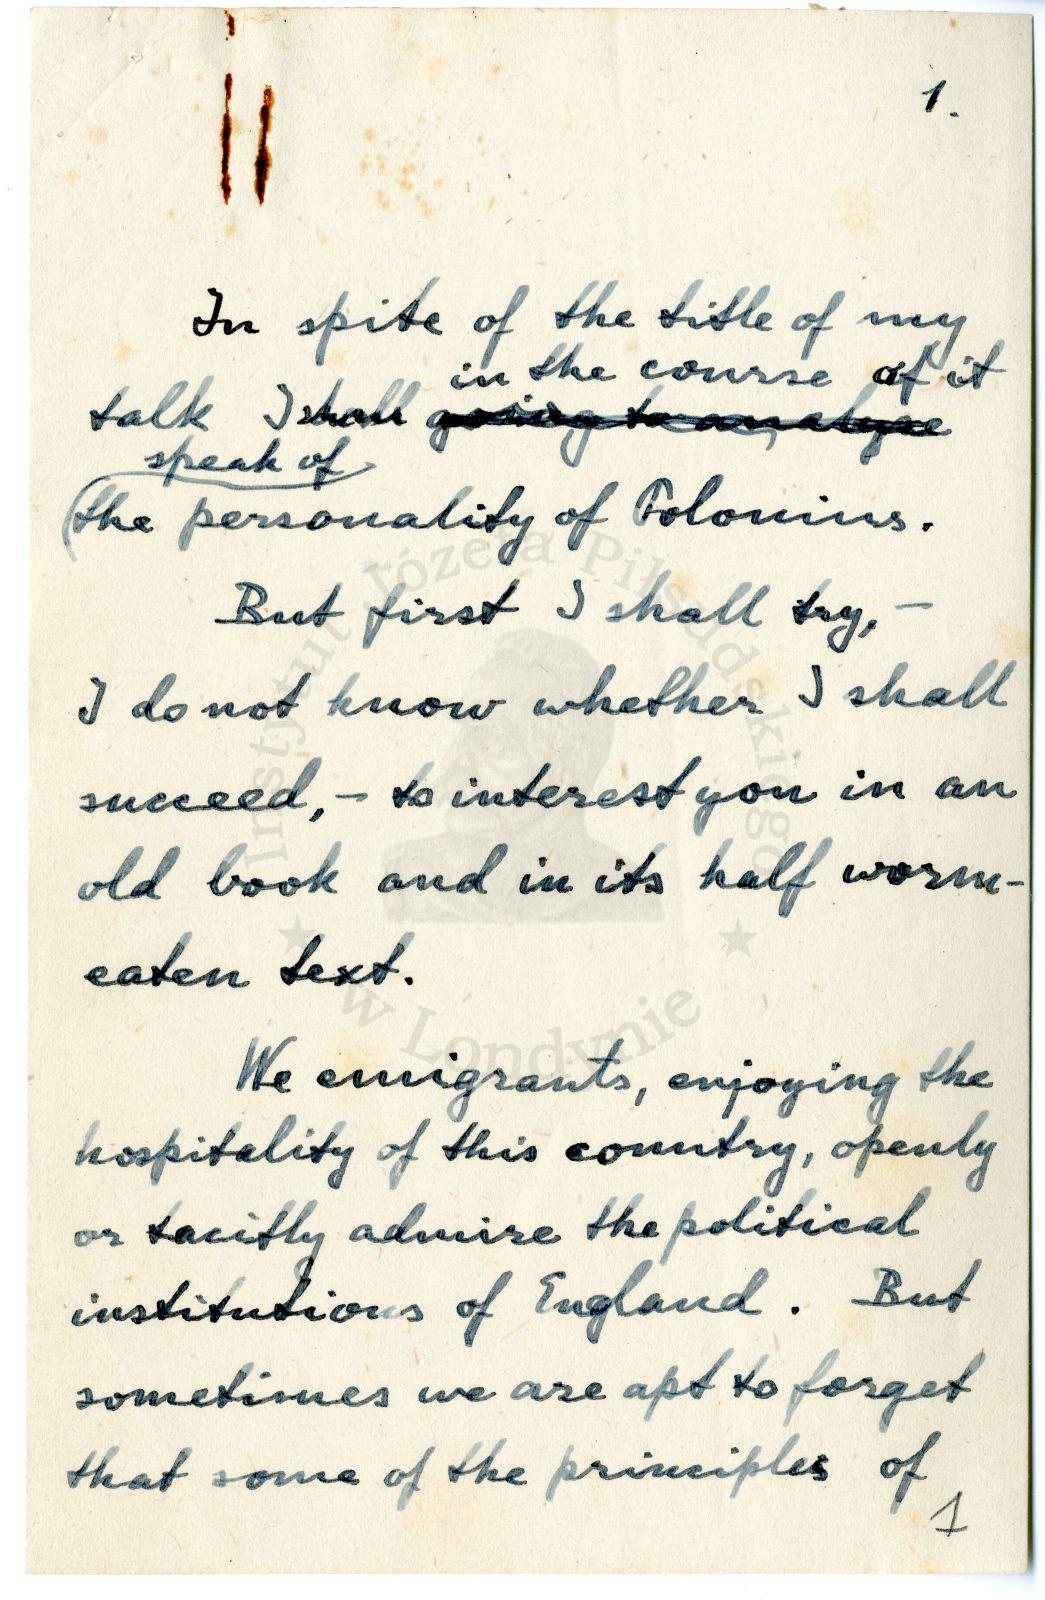 1.
In spite of the title of my
in the course of it
talk I shall going to analyse
speak of
the personality of Polonius.
But first I shall try, –
I do not know whether I shall
succeed, – to interest you in an
old book and in its half worm-
eaten text.
We emigrants, enjoying the
hospitality of this country, openly
or tacitly admire the political
institutions of England. But
sometimes we are apt to forget
that some of the principles of
1
Instytut Józefa Piłsudskiego
w Londynie